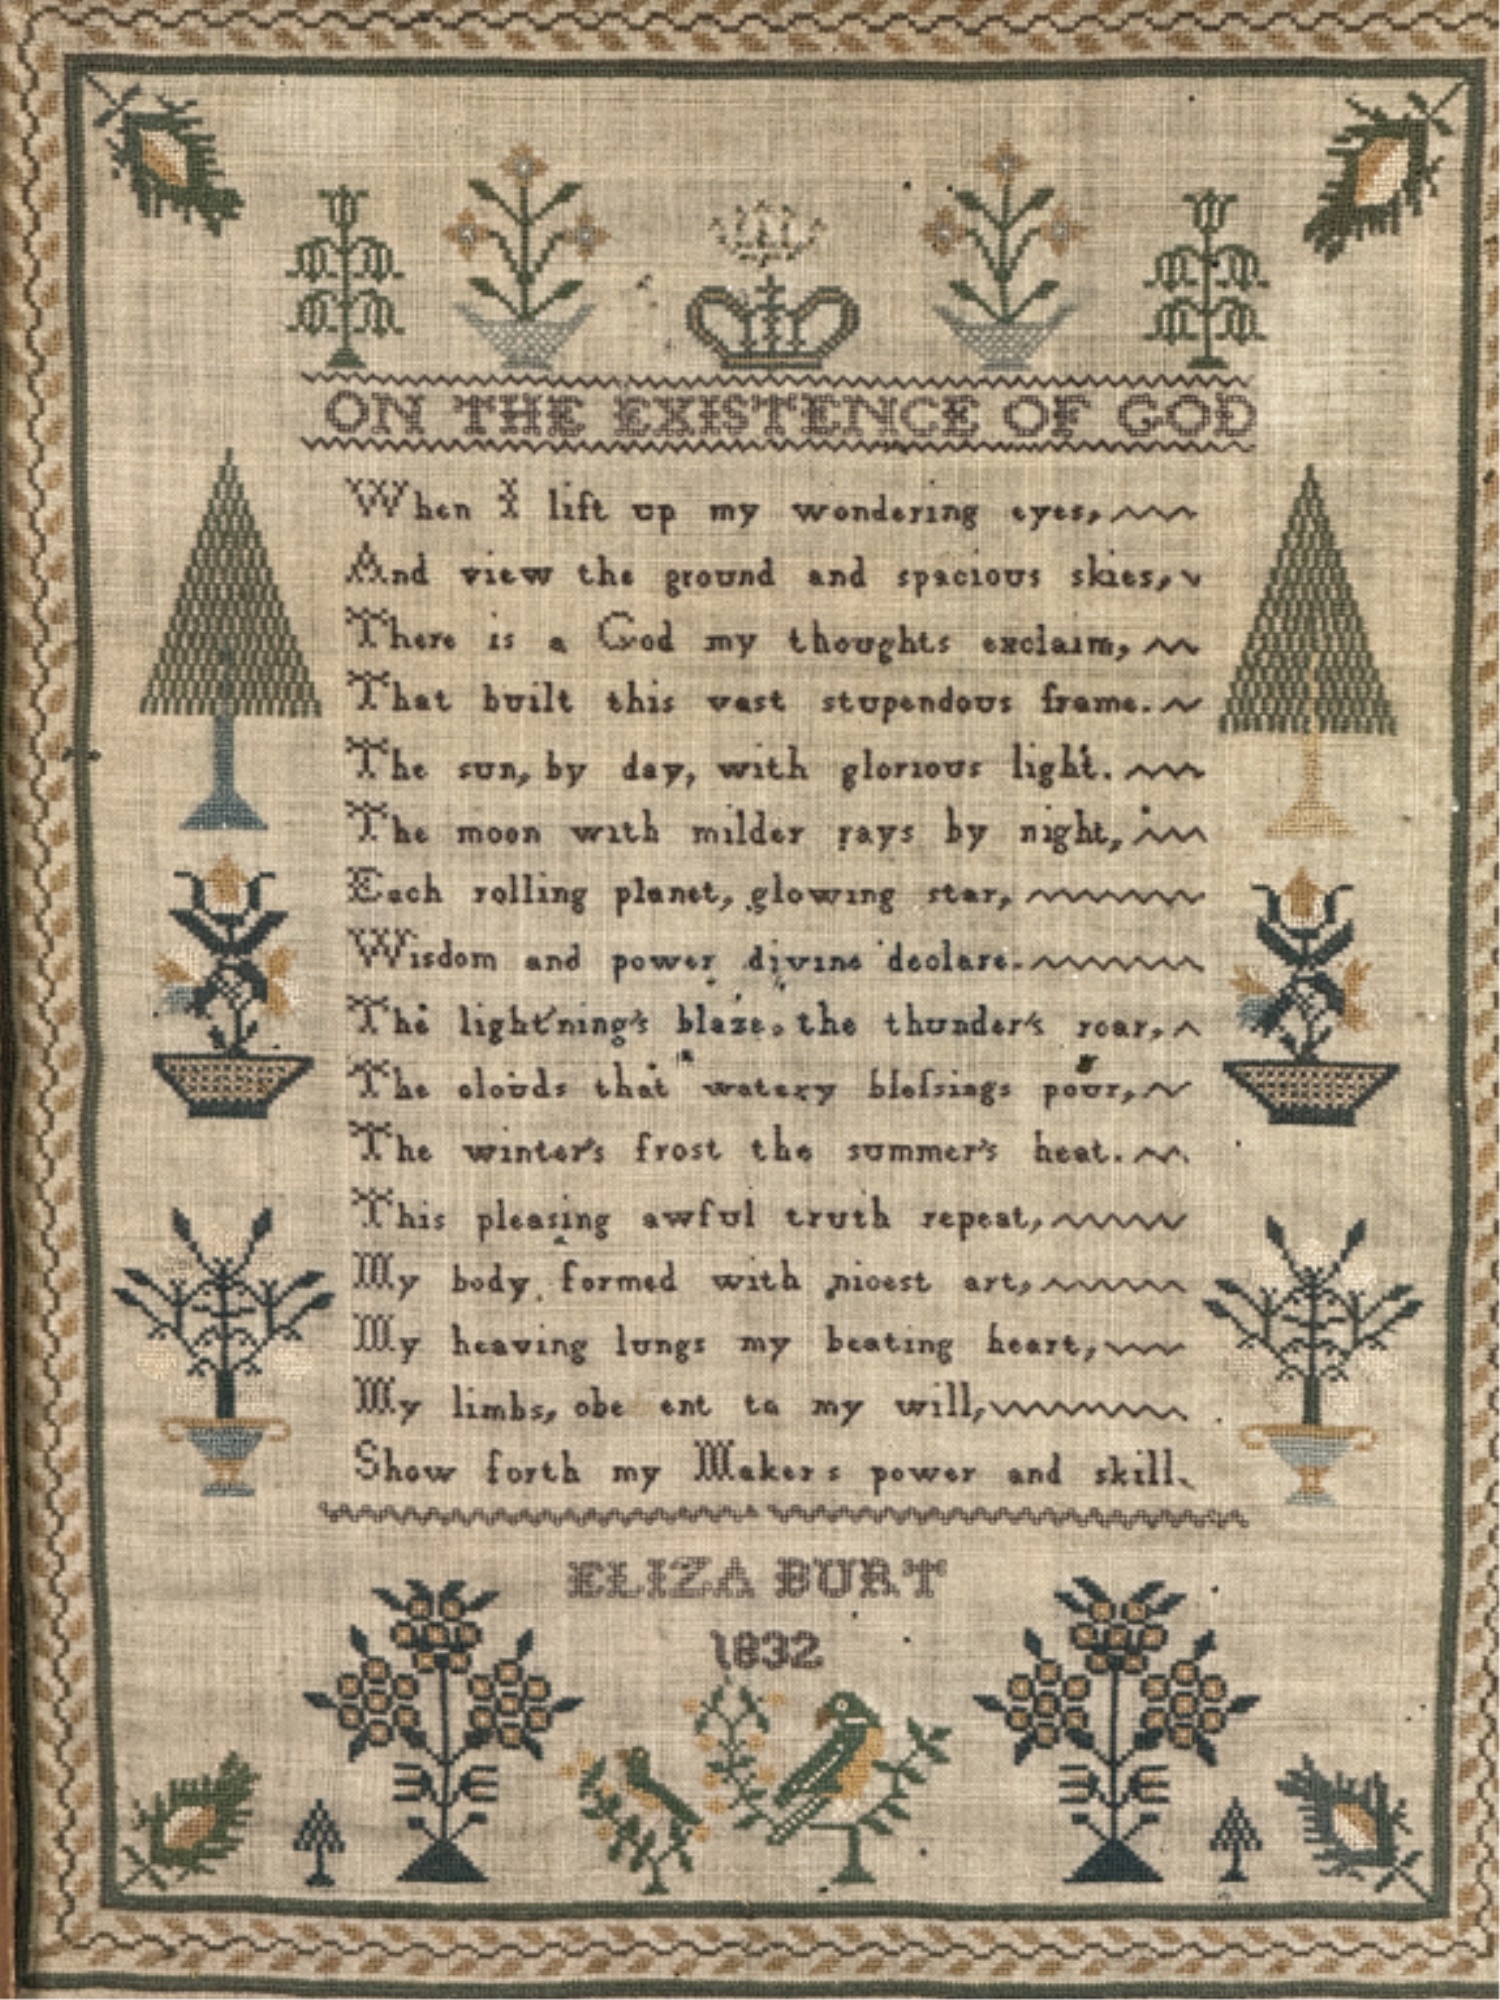 ON THE EXISTENCE OF GOD
When I lift up my wondering eyes,
And view the ground and spacious skies,
There is a God my thoughts exclaim,
That built this vast stupendous frame.
The sun, by day, with glorious light.
The moon with milder rays by night,
Each rolling planet, glowing star,
Wisdom and power divine declare.
The light'ning's blaze, the thunder's roar,
The clouds that watery bleſsings pour,
The winter's frost the summer's heat.
This pleasing awful truth repeat,
My body formed with nicest art,
My heaving lungs my beating heart,
My limbs, obe ent to my will,
Show forth my Makers power and skill.
ELIZA BURT
1832